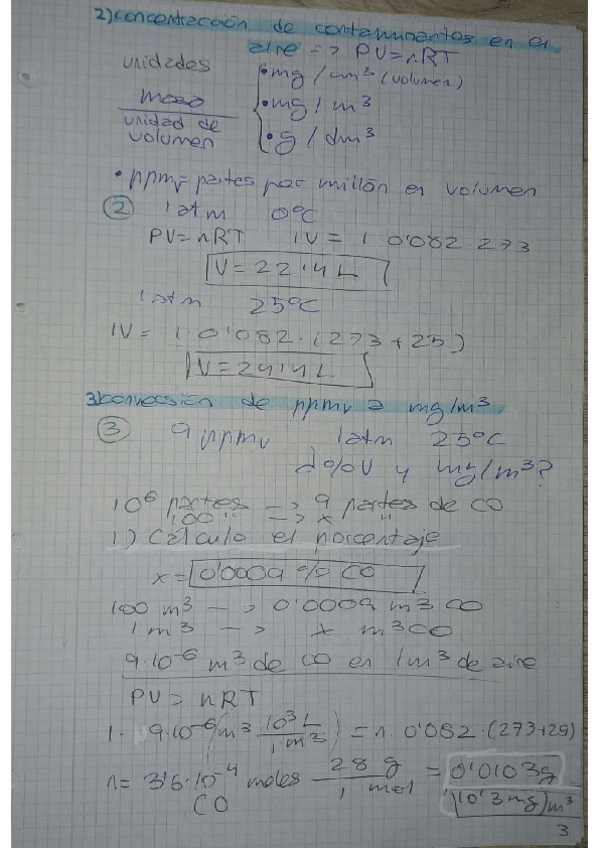 2) concentración de contaminantes en el
aire => PV=nRT
unidades
masa
unidad de
volumen
• mg/cm³ (volumen)
• mg/m³
• g/dm³
• ppmv = partes por millón en volumen
② 1 atm 0ºC
PV=nRT 1V = 1·0'082·273
V=22'4 L
1 atm 25ºC
1V = 1·0'082·(273+25)
V=24'4 L
3) conversión de ppmv a mg/m³
③ 9 ppmv 1 atm 25ºC
¿%V y mg/m³?
10⁶ partes -> 9 partes de CO
100 " -> x "
1) Cálculo el porcentaje
x = 0'0009 % CO
100 m³ -> 0'0009 m³ CO
1 m³ -> x m³ CO
9·10⁻⁶ m³ de CO en 1m³ de aire
PV = nRT
1· 9·10⁻⁶ (m³ 10³ L / 1 m³) = n·0'082·(273+25)
n = 3'6·10⁻⁴ moles CO 28 g / 1 mol = 0'0103g
(10'3 mg) m³
3